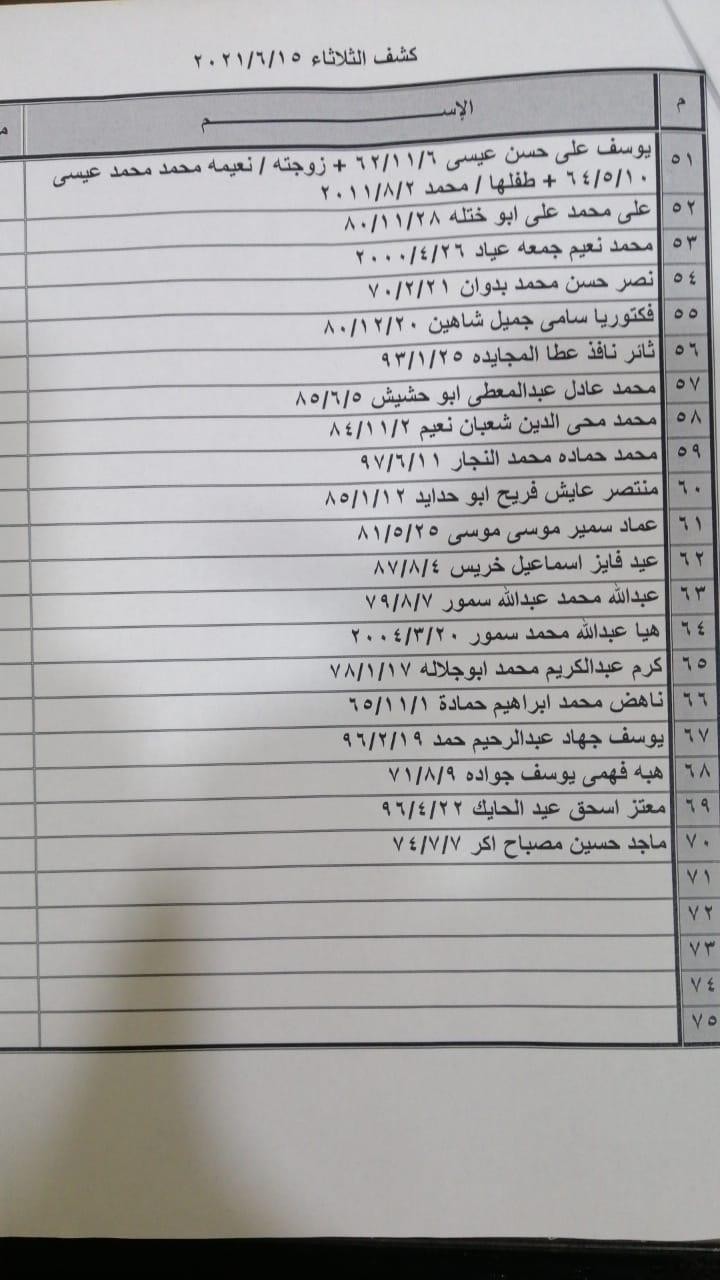 كشف الثلاثاء ٢٠٢١/٦/١٥
م الإســـــــــــــــــم م
٥١ يوسف على حسن عيسى ٦٢/١١/٦ + زوجته / نعيمه محمد محمد عيسى
٦٤/٥/١٠ + طفلها / محمد ٢٠١١/٨/٢
٥٢ على محمد على ابو ختله ٨٠/١١/٢٨
٥٣ محمد نعيم جمعه عياد ٢٠٠٠/٤/٢٦
٥٤ نصر حسن محمد بدوان ٧٠/٢/٢١
٥٥ فكتوريا سامى جميل شاهين ٨٠/١٢/٢٠
٥٦ ثائر نافذ عطا المجايده ٩٣/١/٢٥
٥٧ محمد عادل عبدالمعطى ابو حشيش ٨٥/٦/٥
٥٨ محمد محى الدين شعبان نعيم ٨٤/١١/٢
٥٩ محمد حماده محمد النجار ٩٧/٦/١١
٦٠ منتصر عايش فريح ابو حدايد ٨٥/١/١٢
٦١ عماد سمير موسى موسى ٨١/٥/٢٥
٦٢ عيد فايز اسماعيل خريس ٨٧/٨/٤
٦٣ عبدالله محمد عبدالله سمور ٧٩/٨/٧
٦٤ هيا عبدالله محمد سمور ٢٠٠٤/٣/٢٠
٦٥ كرم عبدالكريم محمد ابوجلاله ٧٨/١/١٧
٦٦ ناهض محمد ابراهيم حمادة ٦٥/١١/١
٦٧ يوسف جهاد عبدالرحيم حمد ٩٦/٢/١٩
٦٨ هبه فهمى يوسف جواده ٧١/٨/٩
٦٩ معتز اسحق عيد الحايك ٩٦/٤/٢٢
٧٠ ماجد حسين مصباح اكر ٧٤/٧/٧
٧١
٧٢
٧٣
٧٤
٧٥